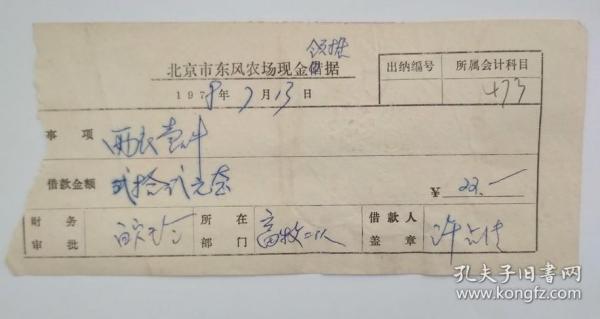 领推
北京市东风农场现金借据
出纳编号 所属会计科目
1979年7月13日
473
事 项 雨衣壹件
借款金额 贰拾贰元整 ¥ 22.-
财务审批 所在部门 借款人盖章 许
孔夫子旧书网
www.kongfz.com